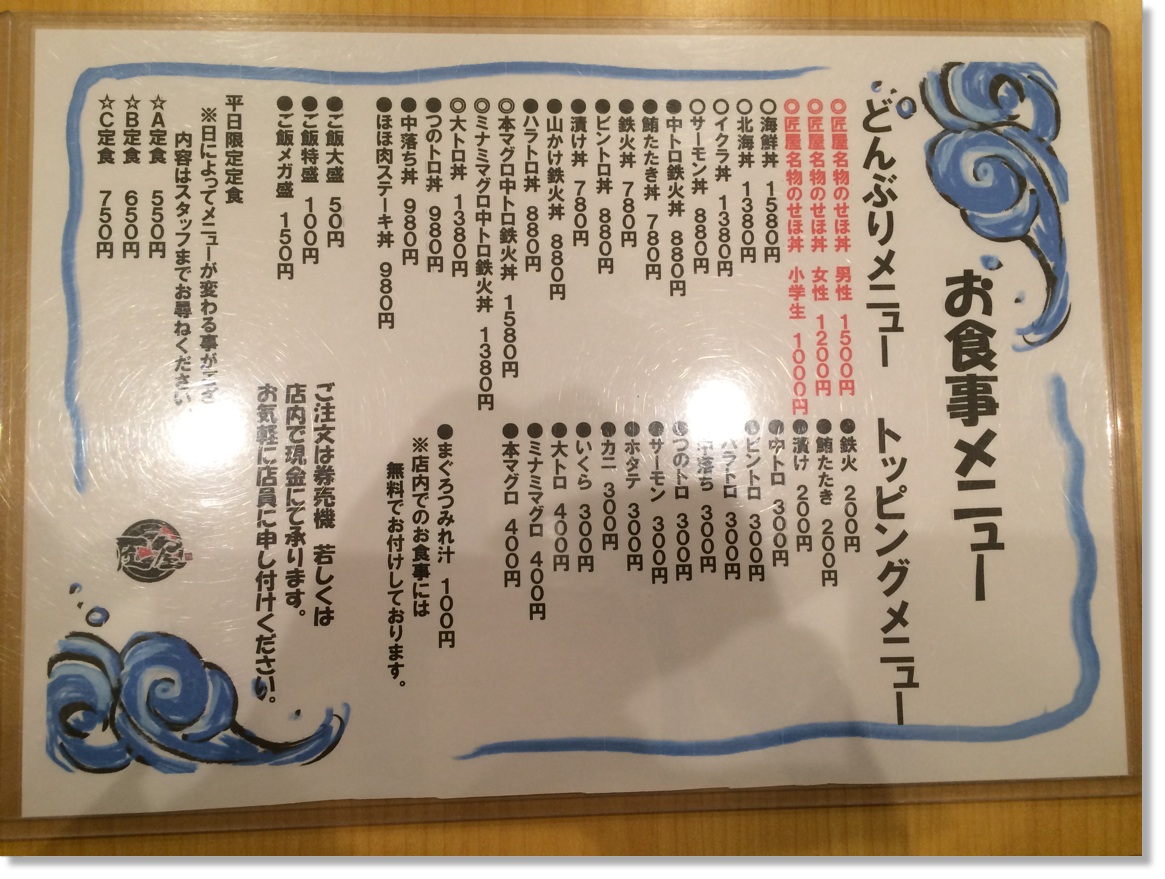 お食事メニュー
どんぶりメニュー
◎匠屋名物のせほ丼 男性 1500円
◎匠屋名物のせほ丼 女性 1200円
◎匠屋名物のせほ丼 小学生 1000円
◎海鮮丼 1580円
◎北海丼 1380円
◎イクラ丼 1380円
◎サーモン丼 880円
●中トロ鉄火丼 880円
●鮪たたき丼 780円
●鉄火丼 780円
●ビントロ丼 880円
●漬け丼 780円
●山かけ鉄火丼 880円
●ハラトロ丼 880円
◎本マグロ中トロ鉄火丼 1580円
◎ミナミマグロ中トロ鉄火丼 1380円
◎大トロ丼 1380円
●つのトロ丼 980円
●中落ち丼 980円
●ほほ肉ステーキ丼 980円
●ご飯大盛 50円
●ご飯特盛 100円
●ご飯メガ盛 150円
平日限定定食
※日によってメニューが変わる事がござ
内容はスタッフまでお尋ねください。
☆A定食 550円
☆B定食 650円
☆C定食 750円
トッピングメニュー
●鉄火 200円
●鮪たたき 200円
●漬け 200円
●中トロ 300円
●ビントロ 300円
●ハラトロ 300円
●中落ち 300円
●つのトロ 300円
●サーモン 300円
●ホタテ 300円
●カニ 300円
●いくら 300円
●大トロ 400円
●ミナミマグロ 400円
●本マグロ 400円
●まぐろつみれ汁 100円
※店内でのお食事には
無料でお付けしております。
ご注文は券売機 若しくは
店内で現金にて承ります。
お気軽に店員に申し付けください。